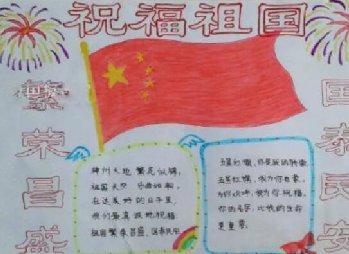 祝福祖国
繁荣昌盛
国泰民安
神州大地 繁花似锦，
祖国大
在这美好的日子里，
我们 地祝福
祖国繁荣昌盛、国泰民安
五星红旗，你是我的骄傲
五星红旗，我为你自豪，
为你欢呼，我为你祝福，
你的名字，比我的生命
更重要。